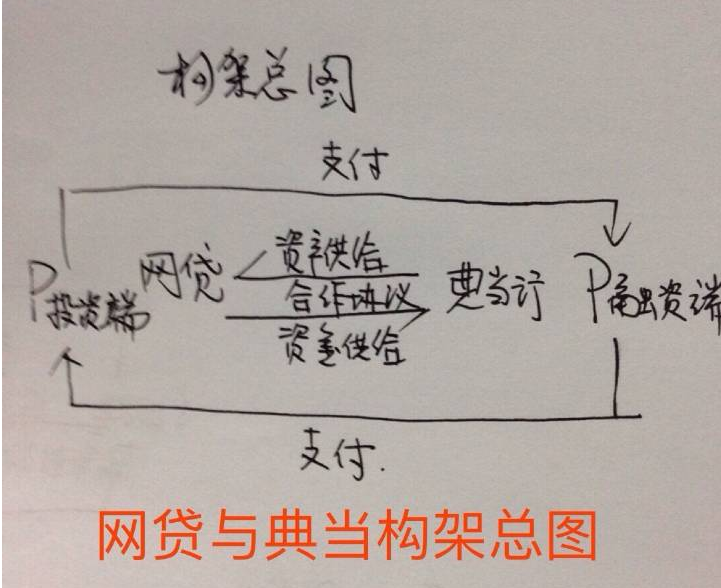 构架总图
支付
P投资端
网贷
资产供给
合作协议
资金供给
典当行
支付.
网贷与典当构架总图